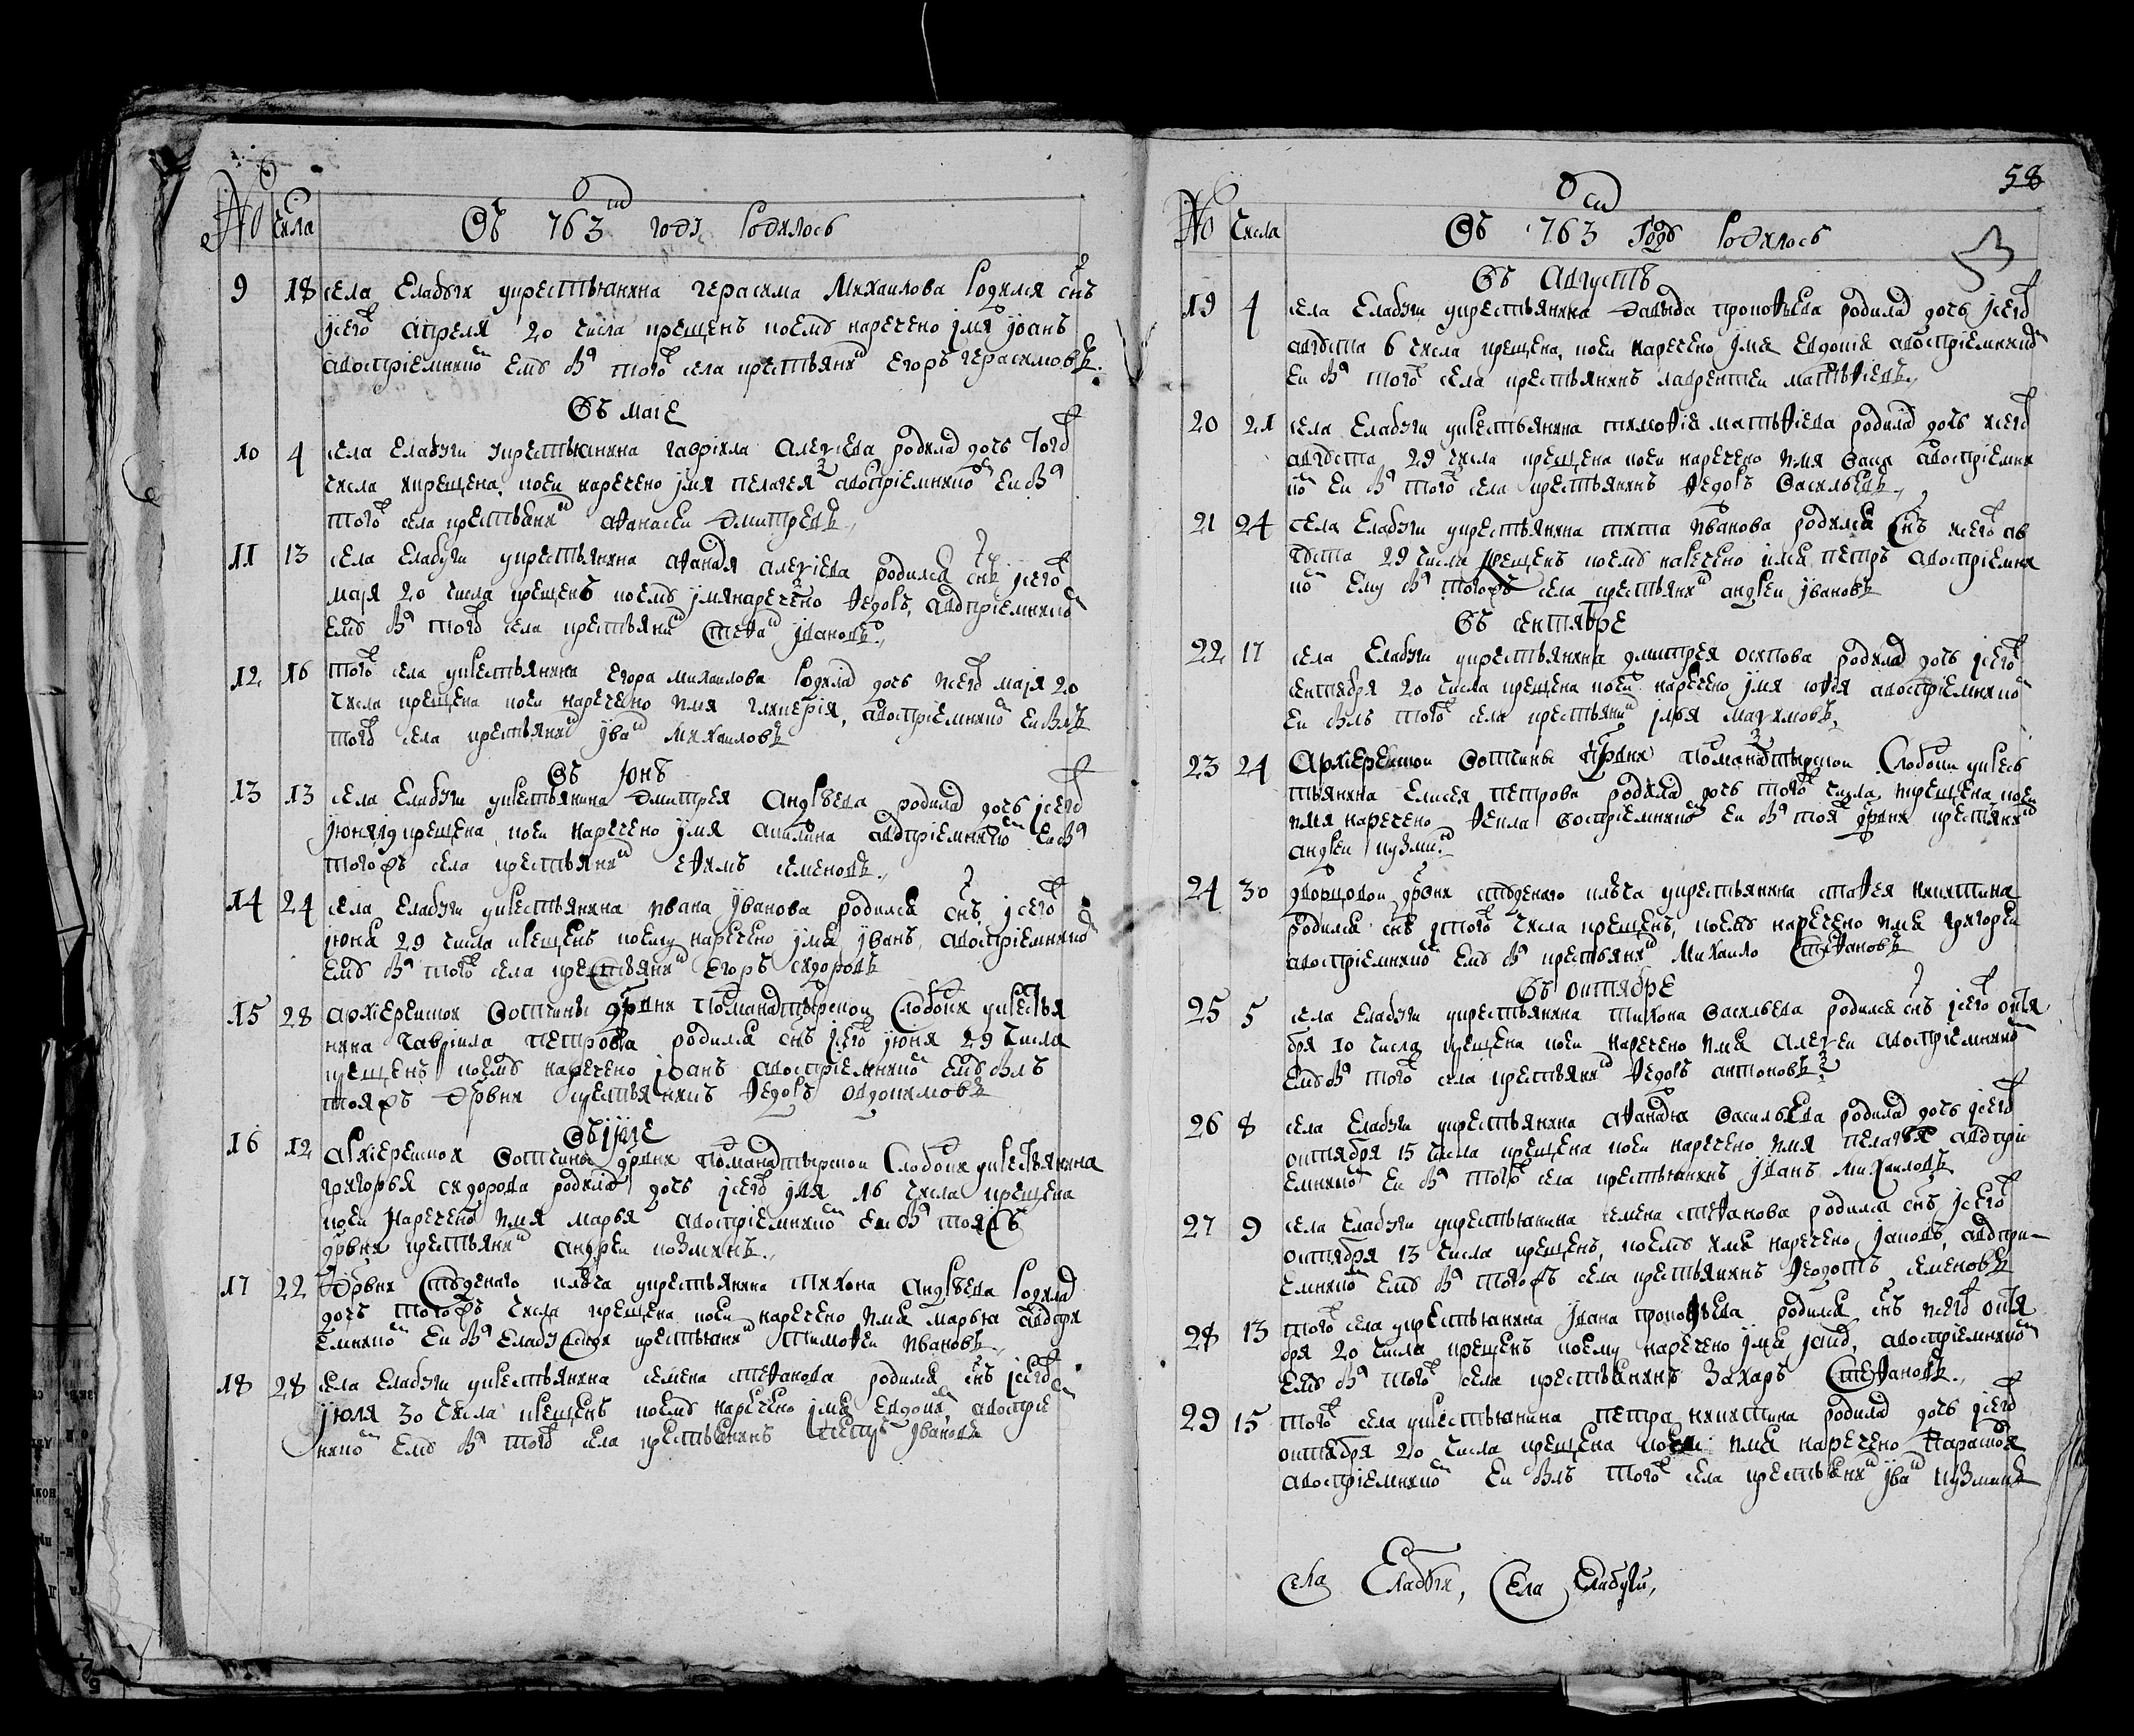 № числа Въ 763м годꙋ родилось
9 18 села Елабуги укрестьянина герасима Михаилова родился снъ
исего апреля 20 числа крещенъ иемꙋ наречено имя иоанъ
авосприемникомъ емꙋ былъ тогожъ села крестьянинъ Егоръ герасимовъ.
Въ маiе
10 4 села Елабуги укрестьянина гавриила алеѯеева родилась дочь того
числа икрещена, иеи наречено имя пелагея авосприемникомъ еи былъ
тогожъ села крестьянинъ аѳанасеи дмитревъ.
11 13 села Елабуги укрестьянина аѳанася алеѯиева родился снъ исего
маiя 20 числа крещенъ иемꙋ имянаречено ѳедоръ, авосприемникомъ
емꙋ былъ тогожъ села крестьянинъ стеѳанъ ивановъ.
12 16 тогожъ села укрестьянина егора михаилова родилась дочь исего маiя 20
числа крещена иеи наречено имя гликерiя, авосприемникомъ еи былъ
тогожъ села крестьянинъ иванъ михаиловъ
Въ июнѣ
13 13 села Елабуги укрестьянина дмитрея андрѣева родилась дочь исего
июня крещена, иеи наречено имя акилина авосприемникомъ еи былъ
тогожъ села крестьянинъ еѳимъ семеновъ.
14 24 села Елабуги укрестьянина ивана иванова родился снъ исего
июня 29 числа крещенъ иемꙋ наречено имя иванъ, авосприемникомъ
емꙋ былъ тогожъ села крестьянинъ егоръ сидоровъ
15 28 архiереиской вотчины дрвни командтырской слободки укрестья
нина гавриила петрова родился снъ исего июня 29 числа
крещенъ иемꙋ наречено иоанъ авосприемникомъ емꙋ былъ
тояжъ дрвни крестьянинъ ѳедоръ овдокимовъ
Въ июле
16 12 архiереиской вотчины дрвни командтырской слободки укрестьянина
григорья сидорова родилась дочь исего июля 16 числа крещена
иеи наречено имя марья авосприемникомъ еи былъ тояжъ
дрвни крестьянинъ андреи козминъ.
17 22 дрвни стꙋденаго ключа укрестьянина тихона андрѣева родилась
дочь тогожъ числа крещена иеи наречено имя марья авоспри
емникомъ еи былъ крестьянинъ тимоѳеи ивановъ.
18 28 села Елабуги укрестьянина семена стеѳанова родился снъ исего
июля 30 числа крещенъ иемꙋ наречено имя евдокимъ, авосприем
никомъ емꙋ былъ тогожъ села крестьянинъ петръ ивановъ
58
№ числа Въ 763м годꙋ родилось
Въ августѣ
19 4 села Елабуги укрестьянина давыда прокоѳьева родилась дочь исего
авгꙋста 6 числа крещена, иеи наречено имя евдокiя авосприемникомъ
еи былъ тогожъ села крестьянинъ лаврентеи матвѣевъ.
20 21 села Елабуги укрестьянина тимоѳiя матвѣева родилась дочь исего
авгꙋста 29 числа крещена иеи наречено имя авосприемни
комъ еи былъ тогожъ села крестьянинъ ѳедоръ васильевъ.
21 24 села Елабуги укрестьянина тита иванова родился снъ исего ав
гꙋста 29 числа крещенъ иемꙋ наречено имя петръ авосприемни
комъ ему былъ тогожъ села крестьянинъ андреи ивановъ
Въ сентябре
22 17 села Елабуги укрестьянина дмитрея осипова родилась дочь исего
сентября 20 числа крещена иеи наречено имя авосприемникомъ
еи былъ тогожъ села крестьянинъ илья маѯимовъ.
23 24 Архiереиской вотчины дрвни командтырской слободки укресь
тьянина елисея петрова родилась дочь тогожъ числа, крещена иеи
имя наречено ѳекла восприемникомъ еи былъ тоя дрвни крестьянинъ
андреи кузминъ.
24 30 дворцовой дрвни стꙋденаго ключа укрестьянина никитина
родился снъ тогожъ числа крещенъ, иемꙋ наречено имя григореи
авосприемникомъ емꙋ былъ крестьянинъ михаило стеѳановъ
Въ октябре
25 5 села Елабуги укрестьянина тихона васильева родился снъ исего октя
бря 10 числа крещена иеи наречено имя алеѯеи авосприемникомъ
емꙋ былъ тогожъ села крестьянинъ ѳедоръ антоновъ
26 8 села Елабуги укрестьянина аѳанасья васильева родилась дочь исего
октября 15 числа крещена иеи наречено имя пелагея авоспри
емникомъ еи былъ тогожъ села крестьянинъ иванъ михаиловъ
27 9 села Елабуги укрестьянина семена стеѳанова родился снъ исего
октября 13 числа крещенъ, иемꙋ имя наречено иаковъ, авоспри-
емникомъ емꙋ былъ тогожъ села крестьянинъ ѳедотъ семеновъ
28 13 тогожъ села укрестьянина ивана прокоѳьева родился снъ исего октя
бря 20 числа крещенъ иему наречено имя иаковъ, авосприемникомъ
емꙋ былъ тогожъ села крестьянинъ захаръ стеѳановъ.
29 15 тогожъ села укрестьянина петра никитина родилась дочь исего
октября 20 числа крещена иеи имя наречено
авосприемникомъ еи былъ тогожъ села крестьянинъ иванъ кузминъ
села Елабуги, Села Елабуги,